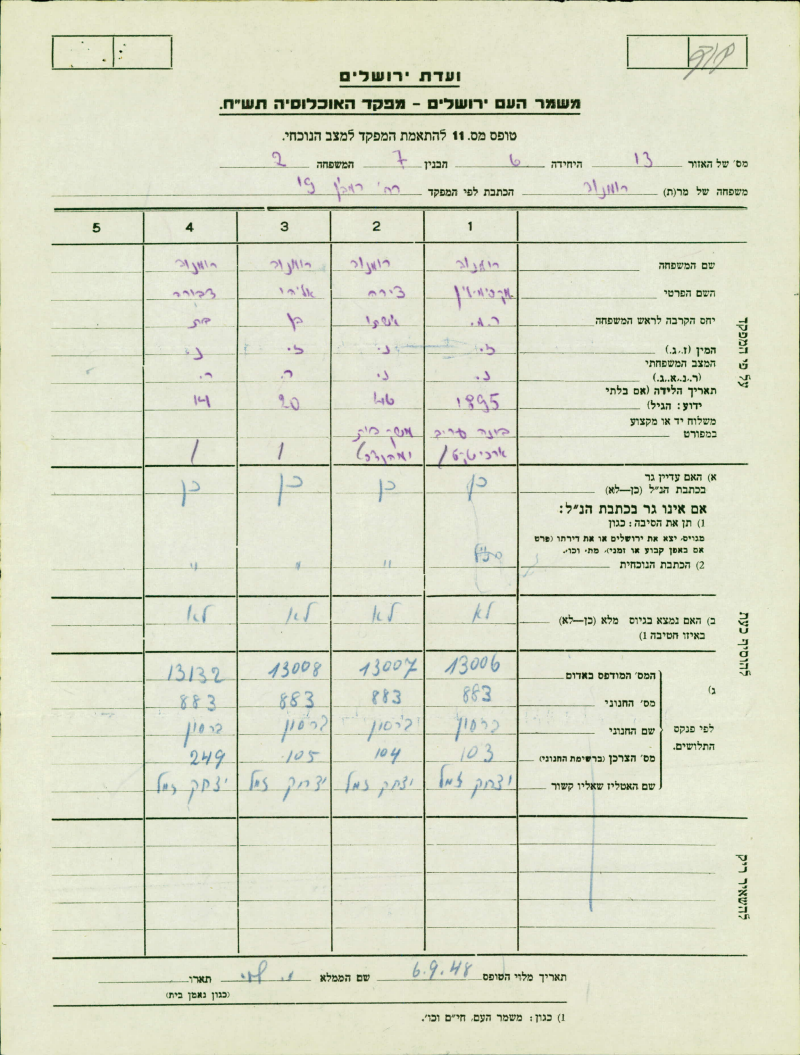 ועדת ירושלים
משמר העם ירושלים – מפקד האוכלוסיה תש״ח.
טופס מס. 11 להתאמת המפקד למצב הנוכחי.
מס׳ של האזור 13 היחידה 6 הבנין 7 המשפחה 2
משפחה של מר(ת) הכתבת לפי המפקד רח׳ רמב״ן 19
1 2 3 4 5
שם המשפחה
השם הפרטי צירה אליהו דבורה
יחס הקרבה לראש המשפחה ר.מ. אשתו בן בת
המין (ז.,נ.) ז. נ. ז. נ.
המצב המשפחתי
(ר.,נ.,א.,ג.) נ. נ. ר. ר.
תאריך הלידה (אם בלתי
ידוע: הגיל) 1895 46 20 14
משלוח יד או מקצוע
במפורט
על פי המפקד
א) האם עדיין גר
בכתבת הנ״ל (כן–לא) כן כן כן כן
אם אינו גר בכתבת הנ״ל:
1) תן את הסיבה: כגון
מגויס, יצא את ירושלים או את דירתו (פרט
אם באפן קבוע או זמני), מת, וכו׳.
2) הכתבת הנוכחית הנ״ל " " "
ב) האם נמצא בגיוס מלא (כן–לא) לא לא לא לא
באיזו חטיבה 1)
להוסיף כעת
ג)
לפי פנקס
התלושים.
המס׳ המודפס באדום 13006 13007 13008 13132
מס׳ החנוני 883 883 883 883
שם החנוני ברסון ברסון ברסון ברסון
מס׳ הצרכן (ברשימת החנוני) 103 104 105 249
שם האטליז שאליו קשור יצחק זמל יצחק זמל יצחק זמל יצחק זמל
להשאיר ריק
תאריך מלוי הטופס 6.9.48 שם הממלא תארו
(כגון נאמן בית)
1) כגון: משמר העם, חי״ם וכו׳.